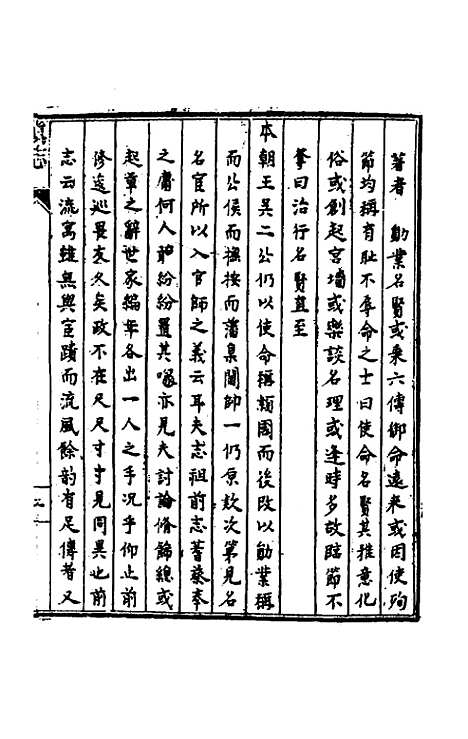 著者　勛業名賢或乘六傳御命遠來或因使殉
節均稱有耻不辱命之士曰使命名賢其推意化
俗或創起宮墻或樂談名理或逢時多故臨節不
奪曰治行名賢直至
本朝王吳二公仍以使命稱類國而後改以勛業稱
而公侯而撫按而藩臬閫師一仍原款次第見名
名宦所以入官師之義云耳夫志祖前志蓍蔡奉
之庸何人敢紛紛置其喙亦見夫討論脩飾總或
起草之辭世家輪年各出一人之手况乎仰止前
修逡巡畏友久矣政不在尺尺寸寸見同異也前
志云流寓雖無與宦蹟而流風餘韵有足傳者又